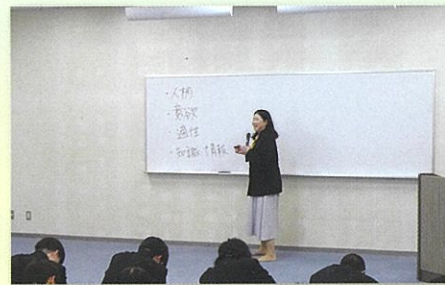 ・人柄
・意欲
・適性
・知識、情報